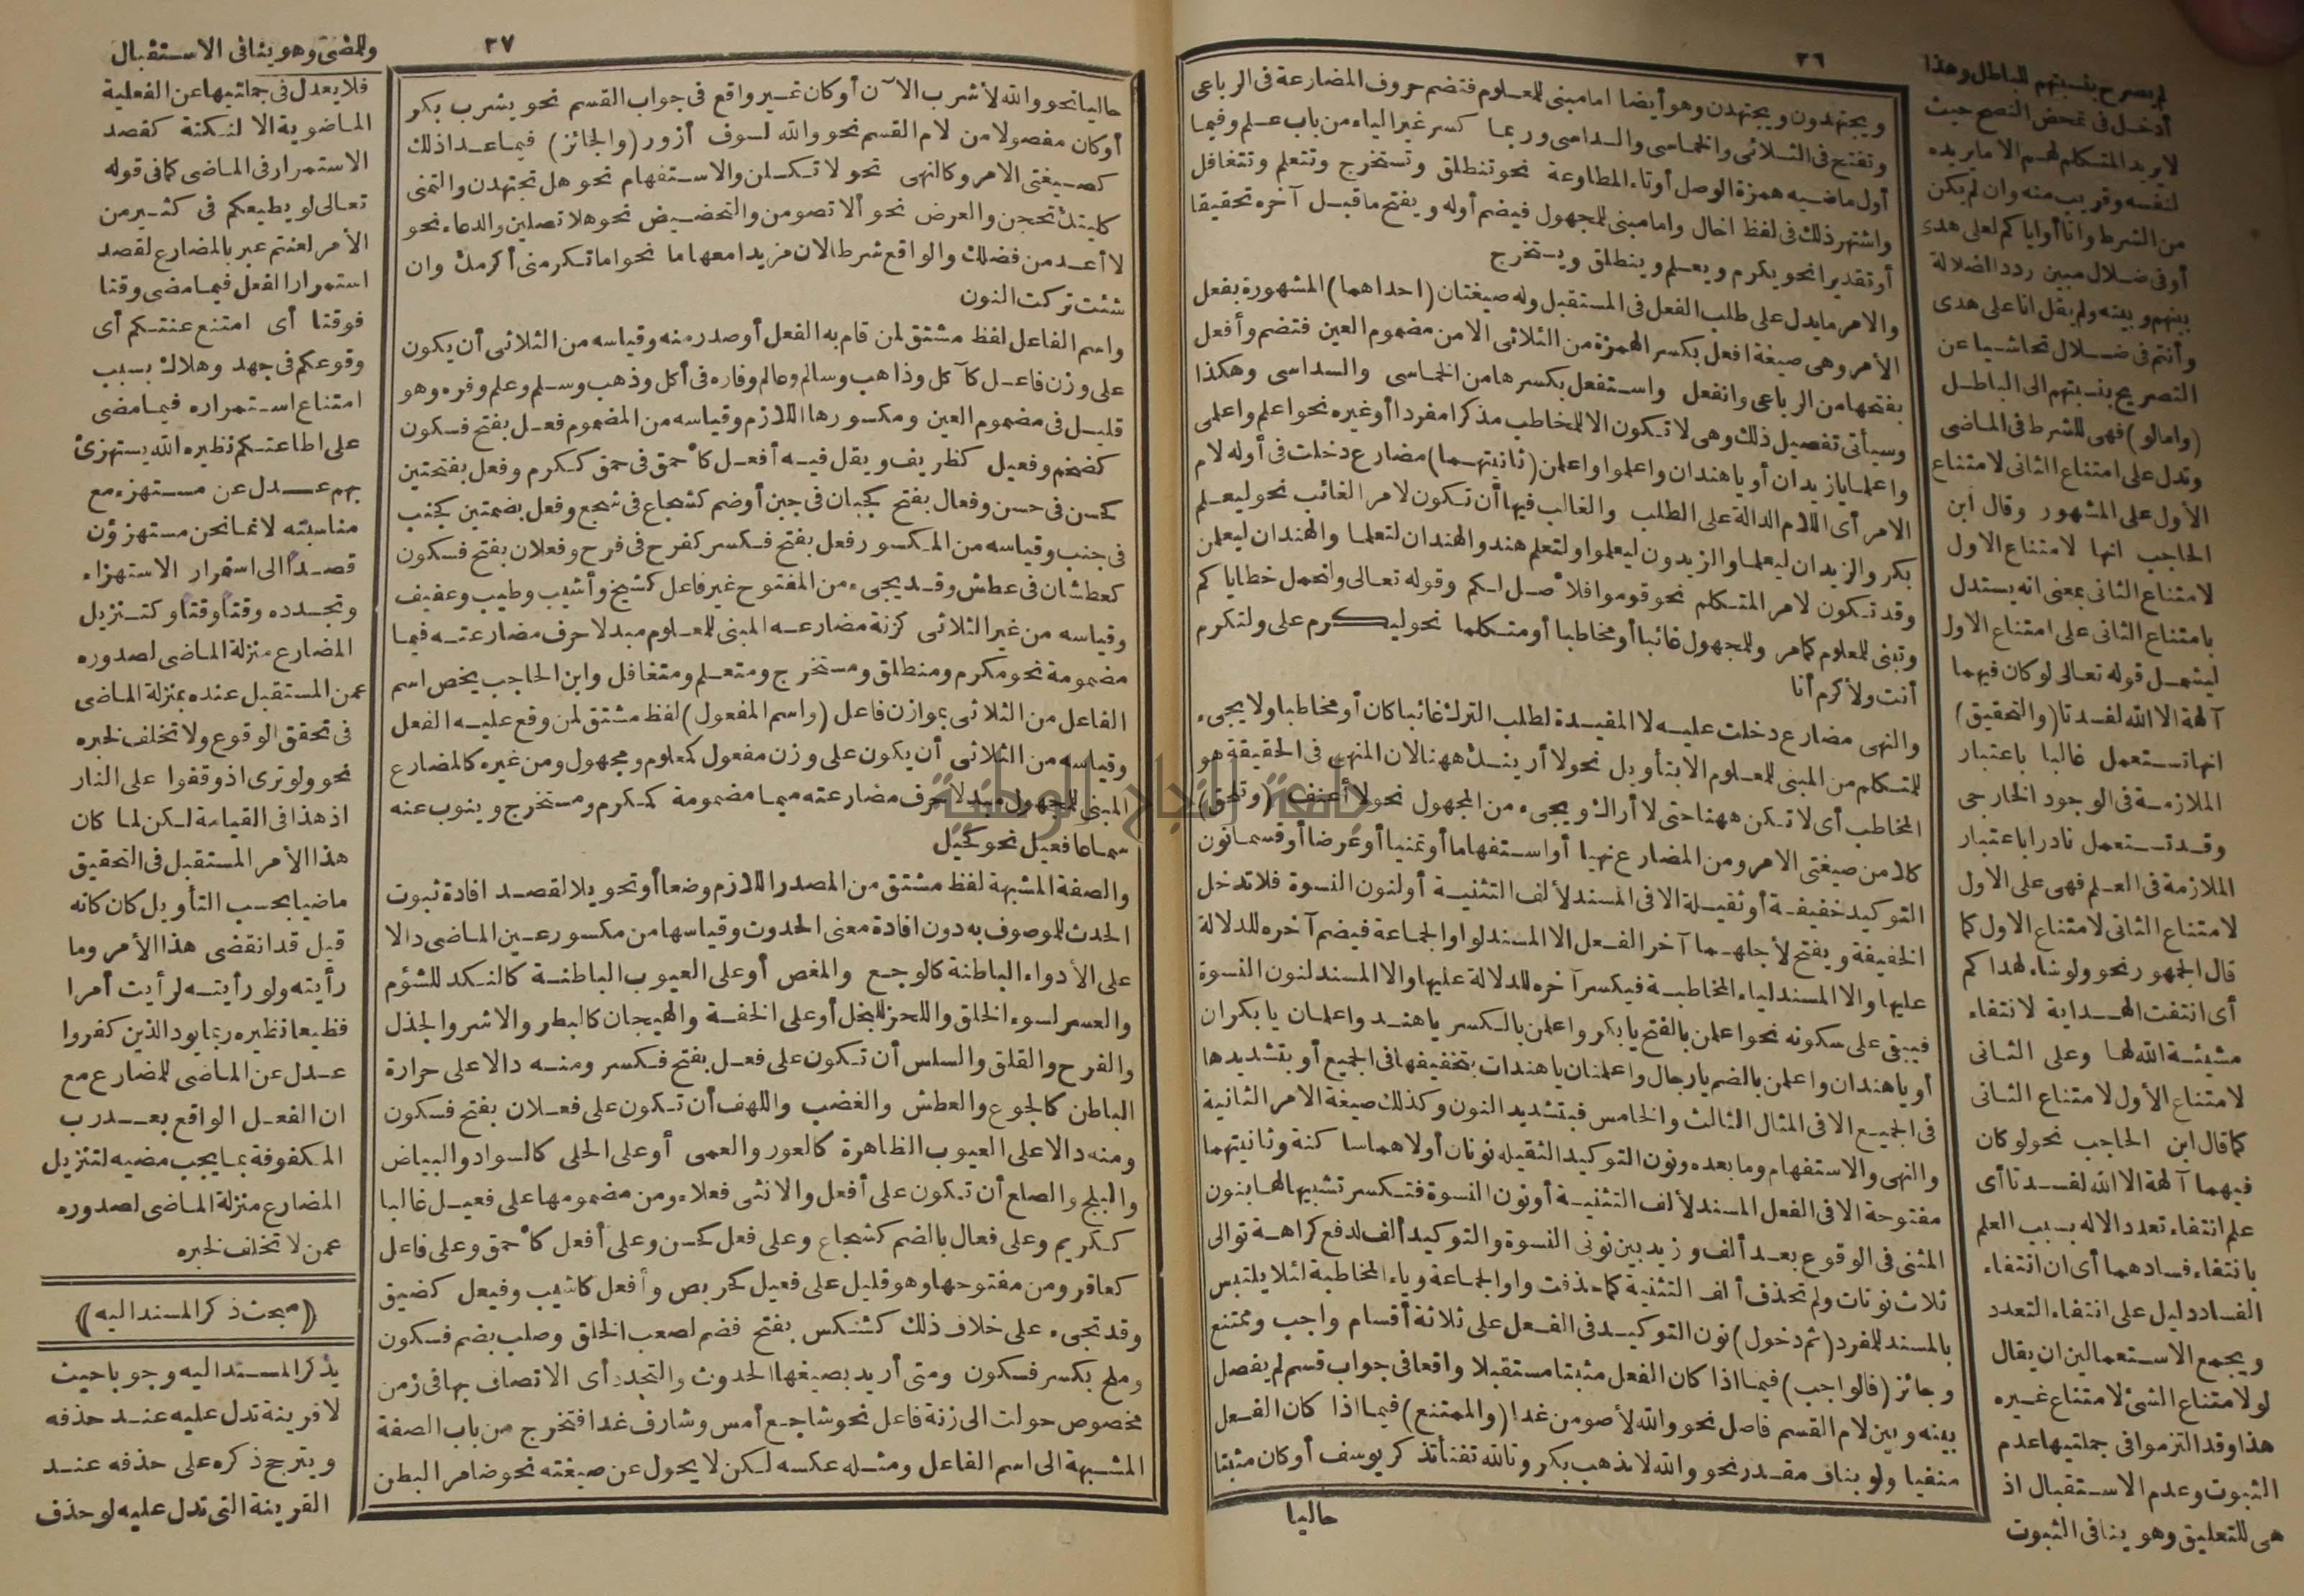 ٣٦
ويجتهدون ويجتهدن وهو أيضا اما مبنى للمعلوم فتضم حروف المضارعة فى الرباعى
وتفتح فى الثلاثى والخماسى والسداسى وربما كسر غير الياء من باب علم وفيما
أول ماضيه همزة الوصل أو تاء المطاوعة نحو تنطلق وتستخرج وتتعلم وتتغافل
واشتهر ذلك فى لفظ اخال واما مبنى للمجهول فيضم أوله ويفتح ما قبل آخره تحقيقا
أو تقديرا نحو يكرم ويعلم وينطلق ويستخرج
والامر ما يدل على طلب الفعل فى المستقبل وله صيغتان (احداهما) المشهورة بفعل
الأمر وهى صيغة افعل بكسر الهمزة من الثلاثى الا من مضموم العين فتضم وأفعل
بفتحها من الرباعى وانفعل واستفعل بكسرها من الخماسى والسداسى وهكذا
وسيأتى تفصيل ذلك وهى لا تكون الا للمخاطب مذكرا مفردا أو غيره نحو اعلم واعلمى
واعلما يا زيدان أو يا هندان واعلموا واعلمن (ثانيتهما) مضارع دخلت فى أوله لام
الامر أى اللام الدالة على الطلب والغالب فيها أن تكون لامر الغائب نحو ليعلم
بكر والزيدان ليعلما والزيدون ليعلموا ولتعلم هند والهندان لتعلما والهندان ليعلمن
وقد تكون لامر المتكلم نحو قوموا فلأصل لكم وقوله تعالى ولنحمل خطاياكم
وتبنى للمعلوم كما مر وللمجهول غائبا أو مخاطبا أو متكلما نحو ليكرم على ولتكرم
أنت ولأكرم أنا
والنهى مضارع دخلت عليه لا المفيدة لطلب الترك غائبا كان أو مخاطبا ولا يجىء
للمتكلم من المبنى للمعلوم الا بتأويل نحو لا أرينك ههنا لان المنهى فى الحقيقة هو
المخاطب أى لا تكن ههنا حتى لا أراك ويجىء من المجهول نحو لا أعنف (وتلحق)
كلا من صيغتى الامر ومن المضارع نهيا أو استفهاما أو تمنيا أو عرضا أو قسما نون
التوكيد خفيفة أو ثقيلة الا فى المسند لألف التثنية أو لنون النسوة فلا تدخل
الخفيفة ويفتح لأجلهما آخر الفعل الا المسند لواو الجماعة فيضم آخره للدلالة
عليها والا المسند لياء المخاطبة فيكسر آخره للدلالة عليها والا المسند لنون النسوة
فيبقى على سكونه نحو اعلمن بالفتح يا بكر واعلمن بالكسر يا هند واعلمان يا بكران
أو يا هندان واعلمن بالضم يا رجال واعلمنان يا هندات بتخفيفها فى الجميع أو بتشديدها
فى الجميع الا فى المثال الثالث والخامس فبتشديد النون وكذلك صيغة الامر الثانية
والنهى والاستفهام وما بعده ونون التوكيد الثقيلة نونان أولاهما ساكنة وثانيتهما
مفتوحة الا فى الفعل المسند لألف التثنية أو نون النسوة فتكسر تشبيها لها بنون
المثنى فى الوقوع بعد ألف وزيد بين نونى النسوة والتوكيد ألف لدفع كراهة توالى
ثلاث نونات ولم تحذف ألف التثنية كما حذفت واو الجماعة وياء المخاطبة لئلا يلتبس
بالمسند للمفرد (ثم دخول) نون التوكيد فى الفعل على ثلاثة أقسام واجب وممتنع
وجائز (فالواجب) فيما اذا كان الفعل مثبتا مستقبلا واقعا فى جواب قسم لم يفصل
بينه وبين لام القسم فاصل نحو والله لأصومن غدا (والممتنع) فيما اذا كان الفعل
منفيا ولو بناف مقدر نحو والله لا يذهب بكر وتالله تفتأ تذكر يوسف أو كان مثبتا
حاليا
لم يصرح بنسبتهم للباطل وهذا
أدخل فى تمحض النصح حيث
لا يريد المتكلم لهم الا ما يريده
لنفسه وقريب منه وان لم يكن
من الشرط وانا أو اياكم لعلى هدى
أو فى ضلال مبين ردد الضلالة
بينهم وبينه ولم يقل انا على هدى
وأنتم فى ضلال تحاشيا عن
التصريح بنسبتهم الى الباطل
(واما لو) فهى للشرط فى الماضى
وتدل على امتناع الثانى لامتناع
الأول على المشهور وقال ابن
الحاجب انها لامتناع الاول
لامتناع الثانى بمعنى انه يستدل
بامتناع الثانى على امتناع الاول
ليشمل قوله تعالى لو كان فيهما
آلهة الا الله لفسدتا (والتحقيق)
انها تستعمل غالبا باعتبار
الملازمة فى الوجود الخارجى
وقد تستعمل نادرا باعتبار
الملازمة فى العلم فهى على الاول
لامتناع الثانى لامتناع الاول كما
قال الجمهور نحو ولو شاء لهداكم
أى انتفت الهداية لانتفاء
مشيئة الله لها وعلى الثانى
لامتناع الأول لامتناع الثانى
كما قال ابن الحاجب نحو لو كان
فيهما آلهة الا الله لفسدتا أى
علم انتفاء تعدد الاله بسبب العلم
بانتفاء فسادهما أى ان انتفاء
الفساد دليل على انتفاء التعدد
ويجمع الاستعمالين ان يقال
لو لامتناع الشئ لامتناع غيره
هذا وقد التزموا فى جملتيها عدم
الثبوت وعدم الاستقبال اذ
هى للتعليق وهو ينافى الثبوت
٣٧
حاليا نحو والله لأشرب الآن أو كان غير واقع فى جواب القسم نحو يشرب بكر
أو كان مفصولا من لام القسم نحو والله لسوف أزور (والجائز) فيما عدا ذلك
كصيغتى الامر وكالنهى نحو لا تكسلن والاستفهام نحو هل تجتهدن والتمنى
كليتك تحجن والعرض نحو ألا تصومن والتحضيض نحو هلا تصلين والدعاء نحو
لا أعدمن فضلك والواقع شرطا لان مزيدا معها ما نحو اما تكرمنى أكرمك وان
شئت تركت النون
واسم الفاعل لفظ مشتق لمن قام به الفعل أو صدر منه وقياسه من الثلاثى أن يكون
على وزن فاعل كآكل وذاهب وسالم وعالم وفاره فى أكل وذهب وسلم وعلم وفره وهو
قليل فى مضموم العين ومكسورها اللازم وقياسه من المضموم فعل بفتح فسكون
كضخم وفعيل كظريف ويقل فيه أفعل كأحمق فى حمق ككرم وفعل بفتحتين
كحسن فى حسن وفعال بفتح كجبان فى جبن أو ضم كشجاع فى شجع وفعل بضمتين كجنب
فى جنب وقياسه من المكسور فعل بفتح فكسر كفرح فى فرح وفعلان بفتح فسكون
كعطشان فى عطش وقد يجىء من المفتوح غير فاعل كشيخ وأشيب وطيب وعفيف
وقياسه من غير الثلاثى كزنة مضارعه المبنى للمعلوم مبدلا حرف مضارعته فيما
مضمومة نحو مكرم ومنطلق ومستخرج ومتعلم ومتغافل وابن الحاجب يخص اسم
الفاعل من الثلاثى بموازن فاعل (واسم المفعول) لفظ مشتق لمن وقع عليه الفعل
وقياسه من الثلاثى أن يكون على وزن مفعول كمعلوم ومجهول ومن غيره كالمضارع
المبنى للمجهول مبدلا حرف مضارعته ميما مضمومة كمكرم ومستخرج وينوب عنه
سماعا فعيل نحو كحيل
والصفة المشبهة لفظ مشتق من المصدر اللازم وضعا أو تحويلا لقصد افادة ثبوت
الحدث للموصوف به دون افادة معنى الحدوث وقياسها من مكسور عين الماضى دالا
على الأدواء الباطنة كالوجع والمغص أو على العيوب الباطنة كالنكد للشؤم
والعسر لسوء الخلق واللحز للبخل أو على الخفة والهيجان كالبطر والاشر والجذل
والفرح والقلق والسلس أن تكون على فعل بفتح فكسر ومنه دالا على حرارة
الباطن كالجوع والعطش والغضب واللهف أن تكون على فعلان بفتح فسكون
ومنه دالا على العيوب الظاهرة كالعور والعمى أو على الحلى كالسواد والبياض
والبلج والصلع أن تكون على أفعل والانثى فعلاء ومن مضمومها على فعيل غالبا
ككريم وعلى فعال بالضم كشجاع وعلى فعل كحسن وعلى أفعل كأحمق وعلى فاعل
كعاقر ومن مفتوحها وهو قليل على فعيل كحريص وأفعل كأشيب وفيعل كضيق
وقد تجىء على خلاف ذلك كشكس بفتح فضم لصعب الخلق وصلب بضم فسكون
وملح بكسر فسكون ومتى أريد بصيغها الحدوث والتجدد أى الاتصاف بها فى زمن
مخصوص حولت الى زنة فاعل نحو شاجع أمس وشارف غدا فتخرج من باب الصفة
المشبهة الى اسم الفاعل ومثله عكسه لكن لا يحول عن صيغته نحو ضامر البطن
وللمضى وهو ينافى الاستقبال
فلا يعدل فى جملتيها عن الفعلية
الماضوية الا لنكتة كقصد
الاستمرار فى الماضى كما فى قوله
تعالى لو يطيعكم فى كثير من
الأمر لعنتم عبر بالمضارع لقصد
استمرار الفعل فيما مضى وقتا
فوقتا أى امتنع عنتكم أى
وقوعكم فى جهد وهلاك بسبب
امتناع استمراره فيما مضى
على اطاعتكم نظيره الله يستهزئ
بهم عدل عن مستهزء مع
مناسبته لانما نحن مستهزؤن
قصدا الى استمرار الاستهزاء
وتجدده وقتا وقتا وكتنزيل
المضارع منزلة الماضى لصدوره
عمن المستقبل عنده بمنزلة الماضى
فى تحقق الوقوع ولا تخلف لخبره
نحو ولو ترى اذ وقفوا على النار
اذ هذا فى القيامة لكن لما كان
هذا الأمر المستقبل فى التحقيق
ماضيا بحسب التأويل كان كانه
قيل قد انقضى هذا الأمر وما
رأيته ولو رأيته لرأيت أمرا
فظيعا نظيره ربما يود الذين كفروا
عدل عن الماضى للمضارع مع
ان الفعل الواقع بعد رب
المكفوفة بما يجب مضيه لتنزيل
المضارع منزلة الماضى لصدوره
عمن لا تخلف لخبره
(مبحث ذكر المسند اليه)
يذكر المسند اليه وجوبا حيث
لا قرينة تدل عليه عند حذفه
ويترجح ذكره على حذفه عند
القرينة التى تدل عليه لو حذف
جامعة النجاح الوطنية